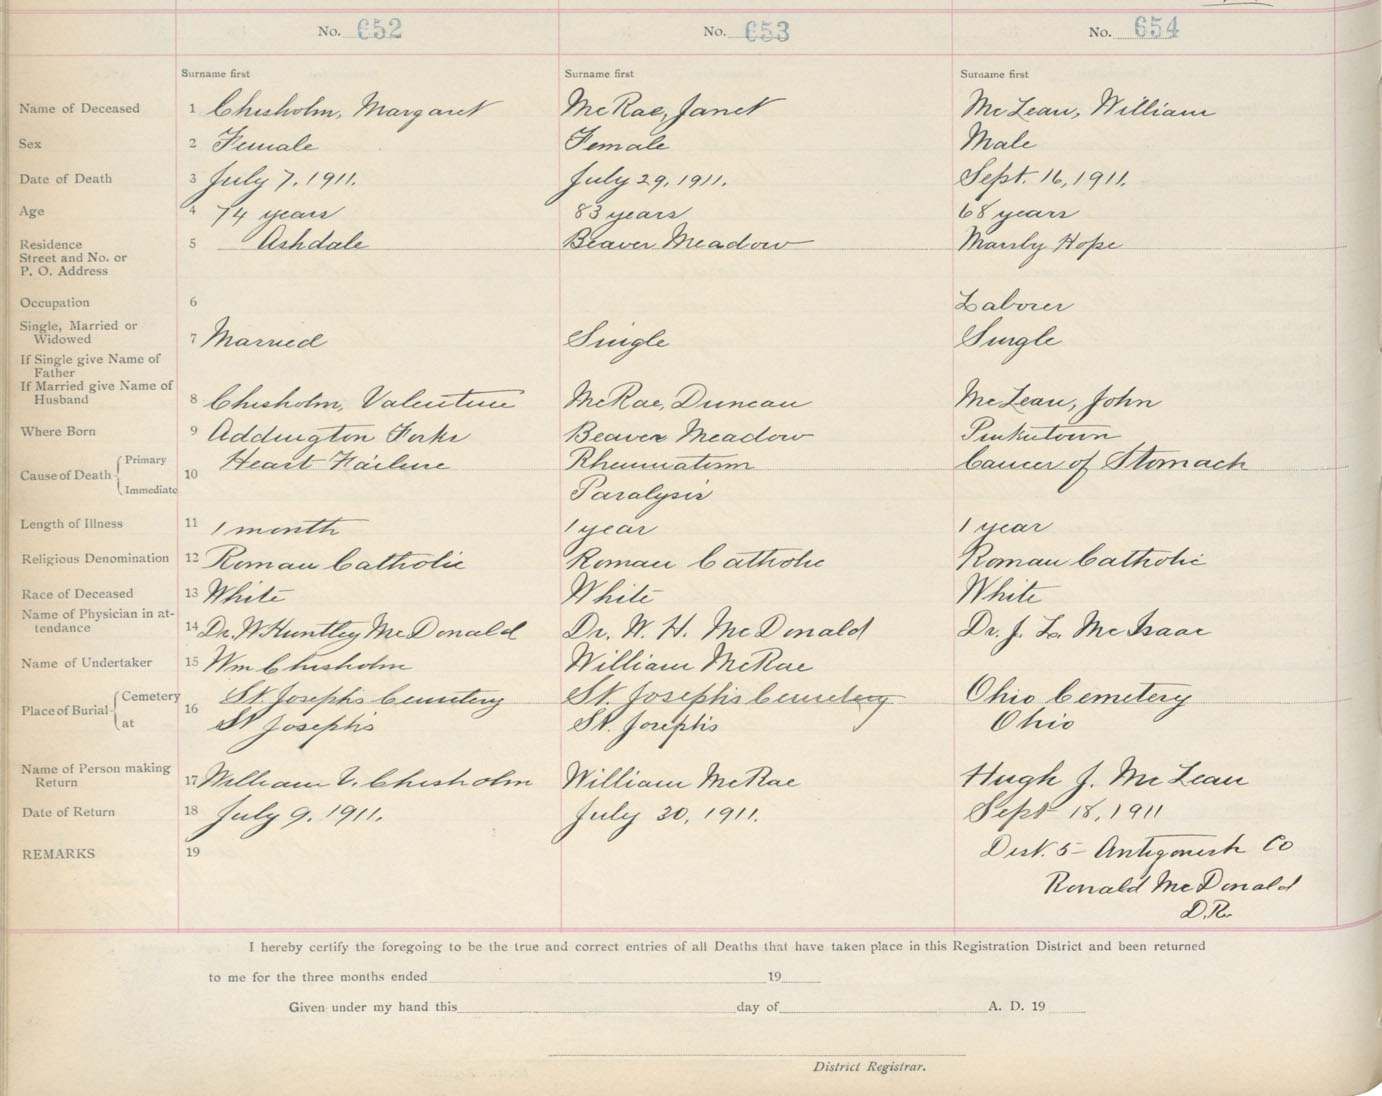 No. 652 No. 653 No. 654
Surname first Surname first Surname first
Name of Deceased 1 Chisholm, Margaret McRae, Janet McLean, William
Sex 2 Female Female Male
Date of Death 3 July 7, 1911. July 29, 1911. Sept. 16, 1911.
Age 4 74 years 83 years 68 years
Residence 5 Ashdale Beaver Meadow Marshy Hope
Street and No. or
P. O. Address
Occupation 6 Laborer
Single, Married or
Widowed 7 Married Single Single
If Single give Name of
Father
If Married give Name of
Husband 8 Chisholm, Valentine McRae, Duncan McLean, John
Where Born 9 Addington Forks Beaver Meadow Pinkietown
Cause of Death Primary 10 Heart Failure Rheumatism Cancer of Stomach
Immediate Paralysis
Length of Illness 11 1 month 1 year 1 year
Religious Denomination 12 Roman Catholic Roman Catholic Roman Catholic
Race of Deceased 13 White White White
Name of Physician in at-
tendance 14 Dr. W Huntley McDonald Dr. W. H. McDonald Dr. J. L. McIsaac
Name of Undertaker 15 Wm Chisholm William McRae
Place of Burial Cemetery 16 St. Josephs Cemetery St. Josephs Cemetery Ohio Cemetery
at St Josephs St. Josephs Ohio
Name of Person making
Return 17 William V. Chisholm William McRae Hugh J. McLean
Date of Return 18 July 9, 1911. July 30, 1911. Sept 18, 1911
REMARKS 19 Dist. 5 - Antigonish Co
Ronald McDonald
D.R.
I hereby certify the foregoing to be the true and correct entries of all Deaths that have taken place in this Registration District and been returned
to me for the three months ended 19
Given under my hand this day of A. D. 19
District Registrar.